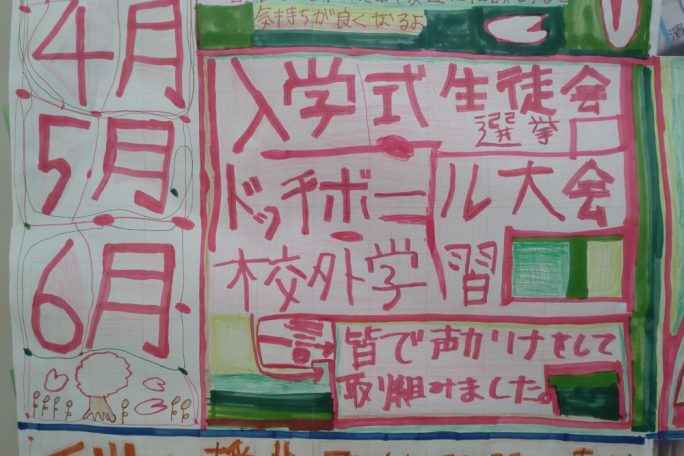 気持ちが良くなるよ
4月
入学式 生徒会
選挙
5月
ドッチボール大会
6月
校外学習
一言
皆で声かけをして
取り組みました。